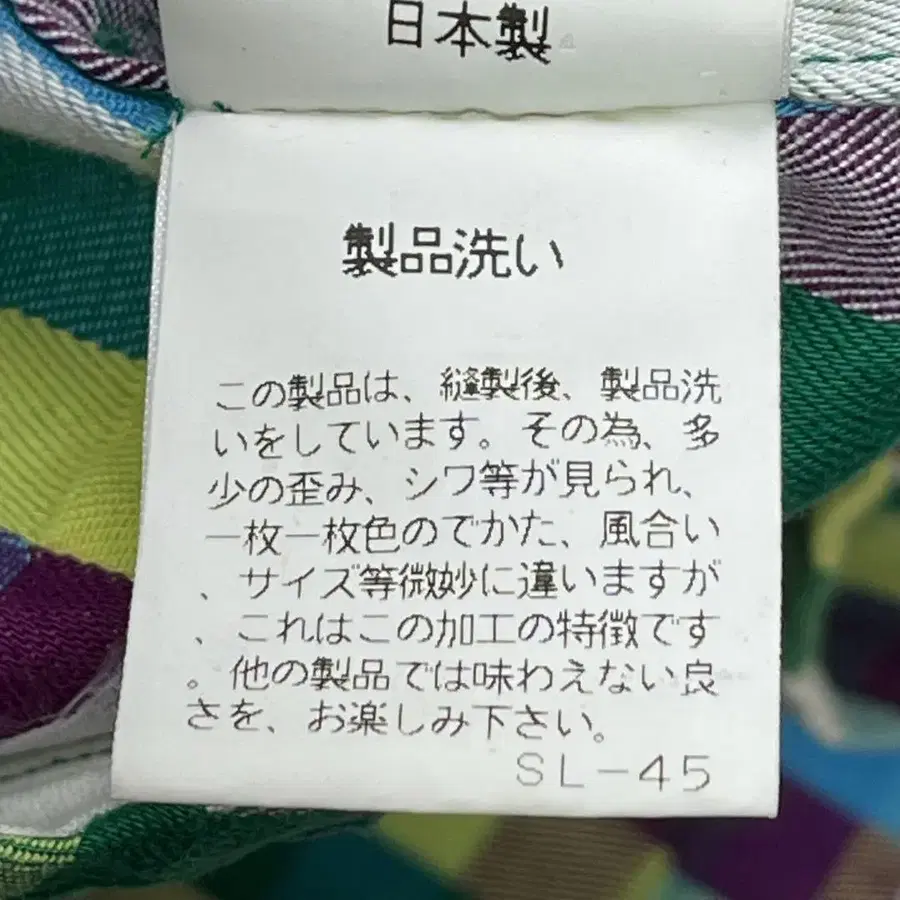 日本製
製品洗い
この製品は、縫製後、製品洗
いをしています。その為、多
少の歪み、シワ等が見られ、
一枚一枚色のでかた、風合い
、サイズ等微妙に違いますが
、これはこの加工の特徴です
。他の製品では味わえない良
さを、お楽しみ下さい。
SL-45